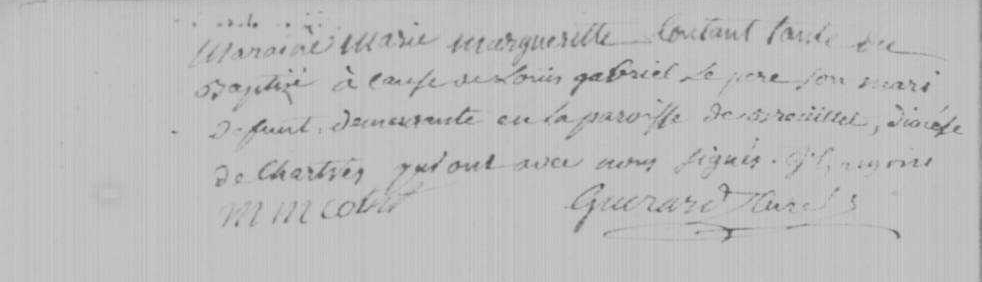 Maraine Marie Margueritte Coutant tante du
Baptisé à cause de Louis gabriel Le pere son mari
Defunt. demeurante en la paroisse de Breuillet, diocèse
de Chartres qui ont avec nous signés.
M M Cot
Guerard Curé